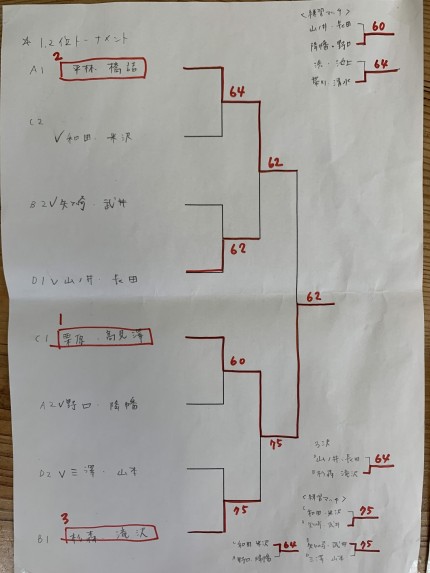 1.2位トーナメント
2
A1 平林・橋詰
C2 ✓和田・米沢
B2 ✓矢ヶ崎・武井
D1 ✓山ノ井・長田
1
C1 栗原・高見澤
A2 ✓野口・降幡
D2 ✓三澤・山本
3
B1 杉森 滝沢
64
62
62
62
60
75
75
<練習マッチ>
山ノ井・長田
降幡・野口
60
浜・池上
清水
64
3決
山ノ井・長田
杉森 滝沢
64
<練習マッチ>
和田・米沢
75
武井
三澤 山本
75
和田 米沢
野口 降幡
64